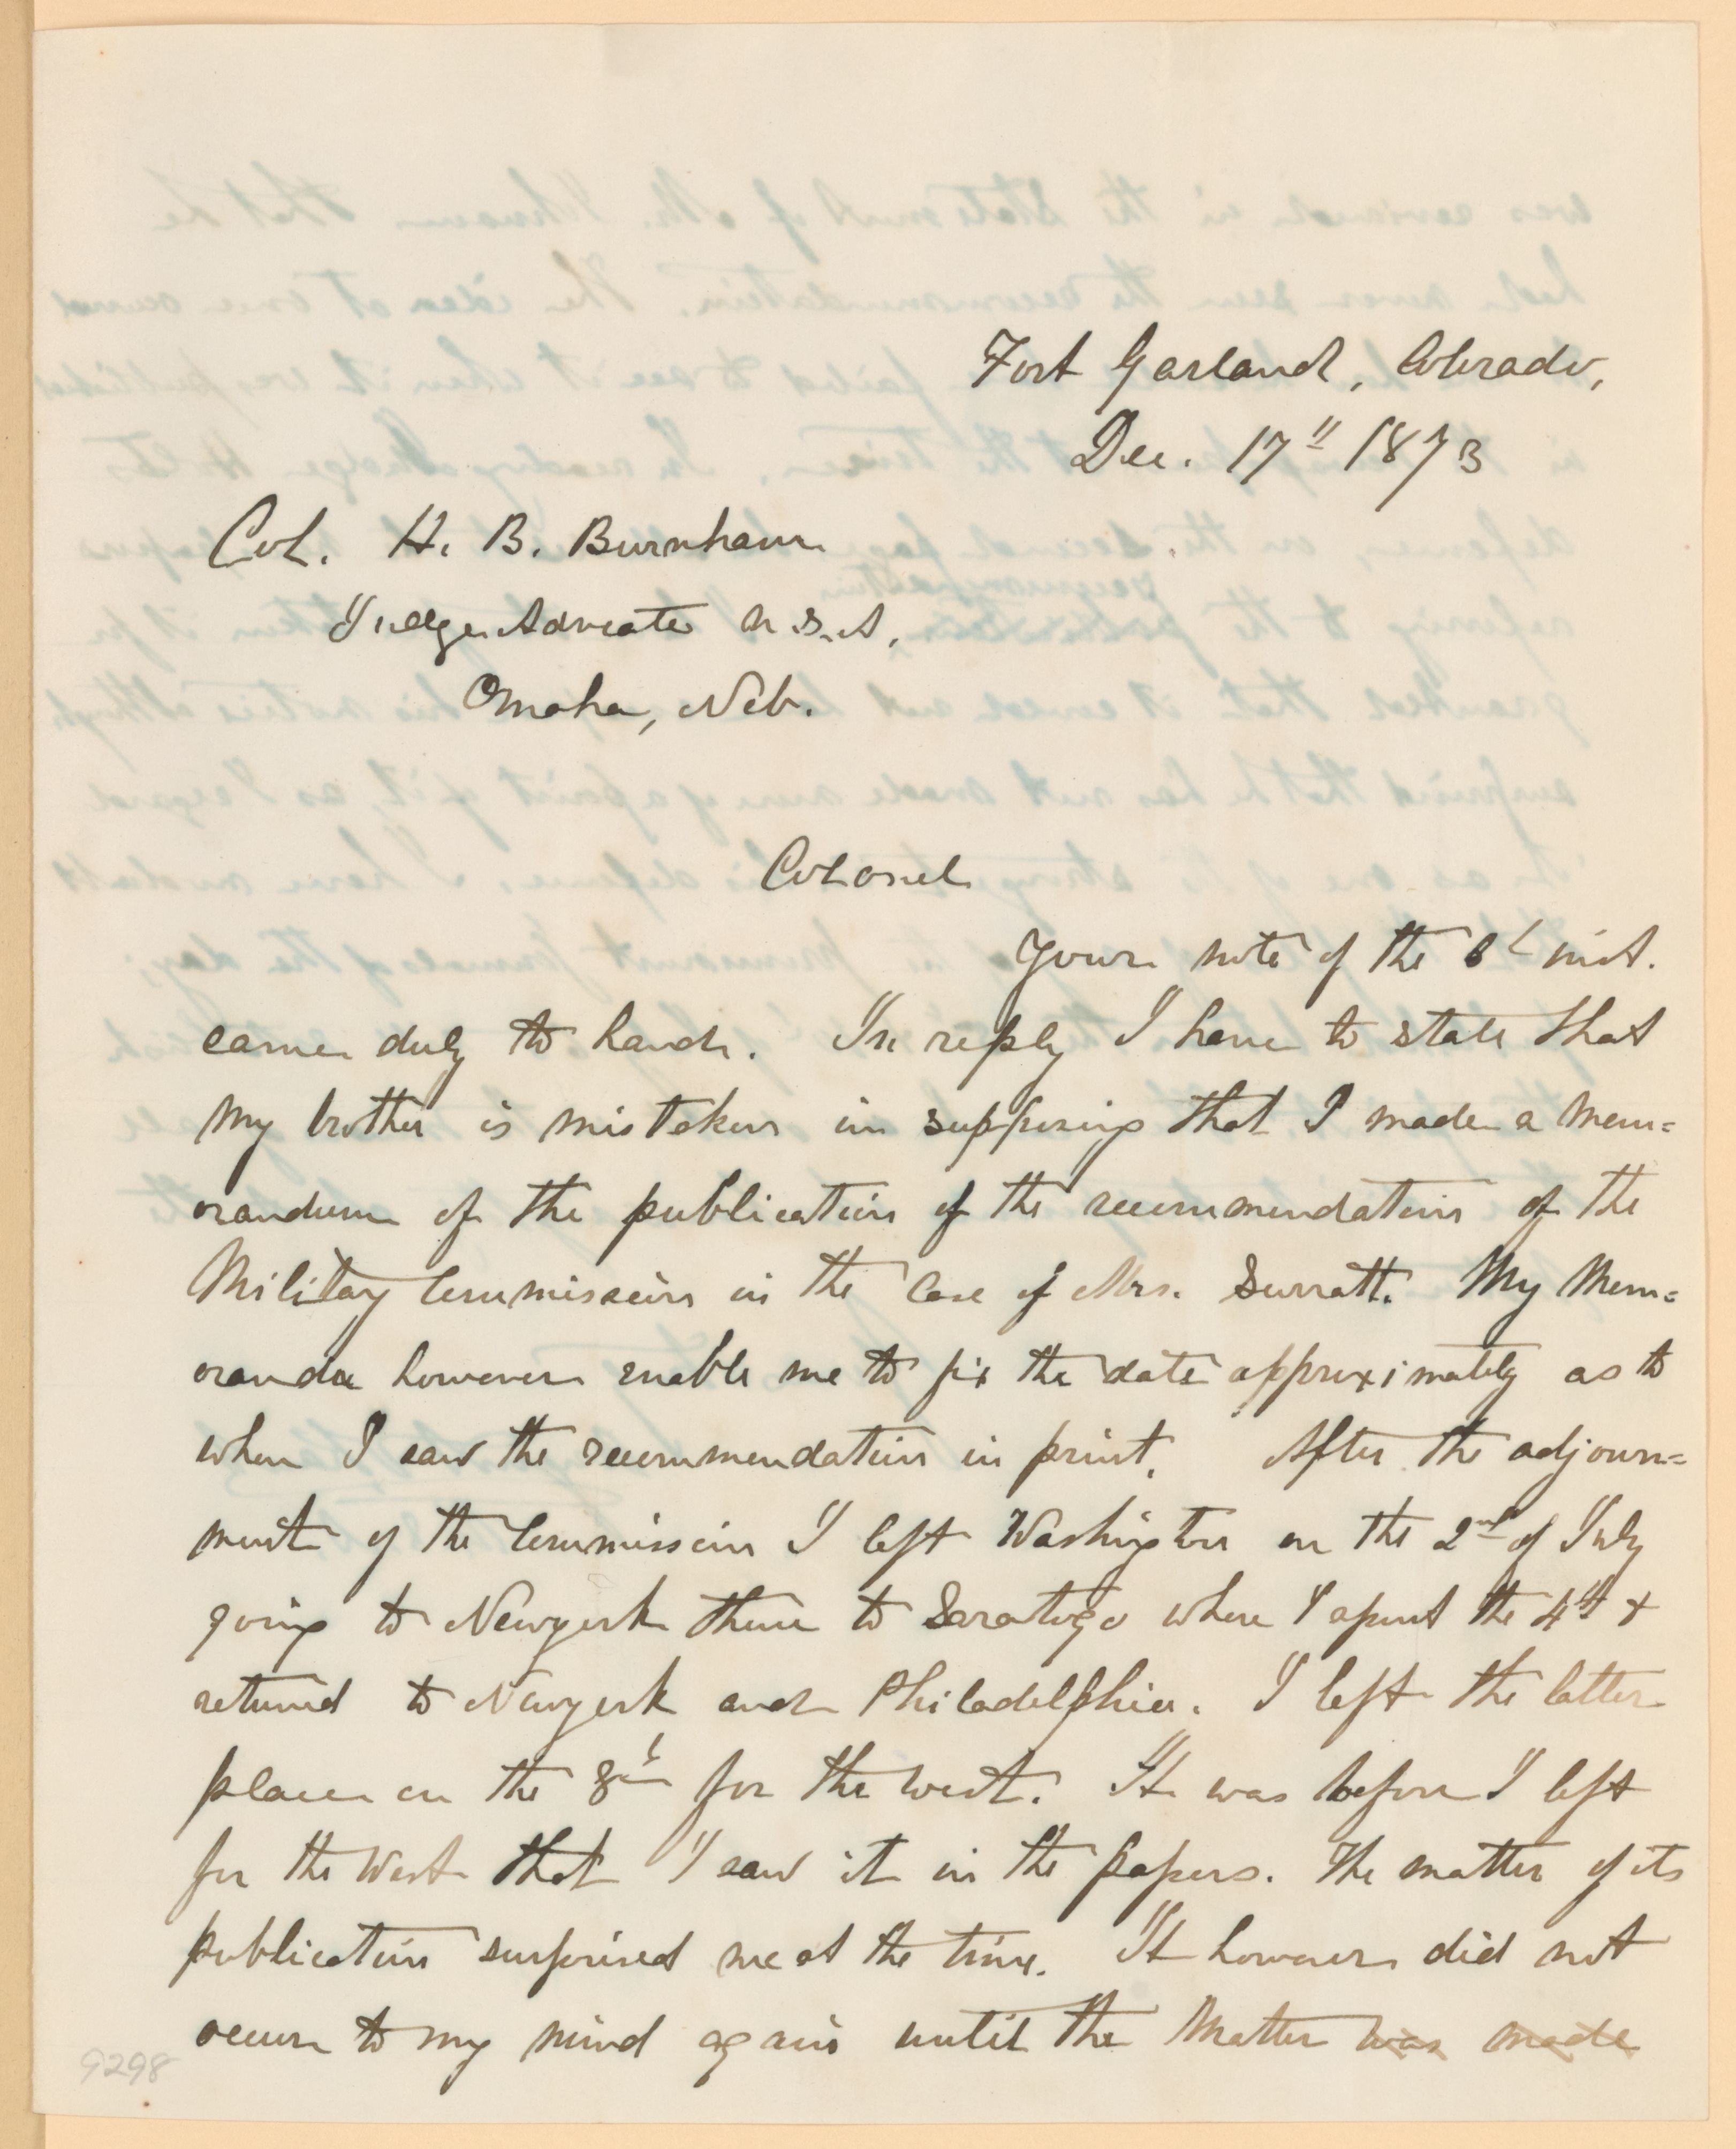 Fort Garland, Colorado,
Dec. 17" 1873
Col. H. B. Burnham
Judge Advocate U.S.A.
Omaha, Neb.
Colonel
Your note of the inst.
came duly to hand. In reply I have to state that
my brother is mistaken in supposing that I made a mem=
orandum of the publication of the recommendation of the
Military Commission in the Case of Mrs. Surratt. My Mem=
oranda however enable me to fix the date approximately as to
when I saw the recommendation in print. After the adjourn=
ment of the Commission I left Washington on the 2nd of July
going to Newyork thence to Saratoga where I spent the 4th &
returned to Newyork and Philadelphia. I left the latter
place on the 8th for the west. It was before I left
for the West that I saw it in the papers. The matter of its
publication surprised me at the time. It however did not
occur to my mind again until the Matter was made
9298